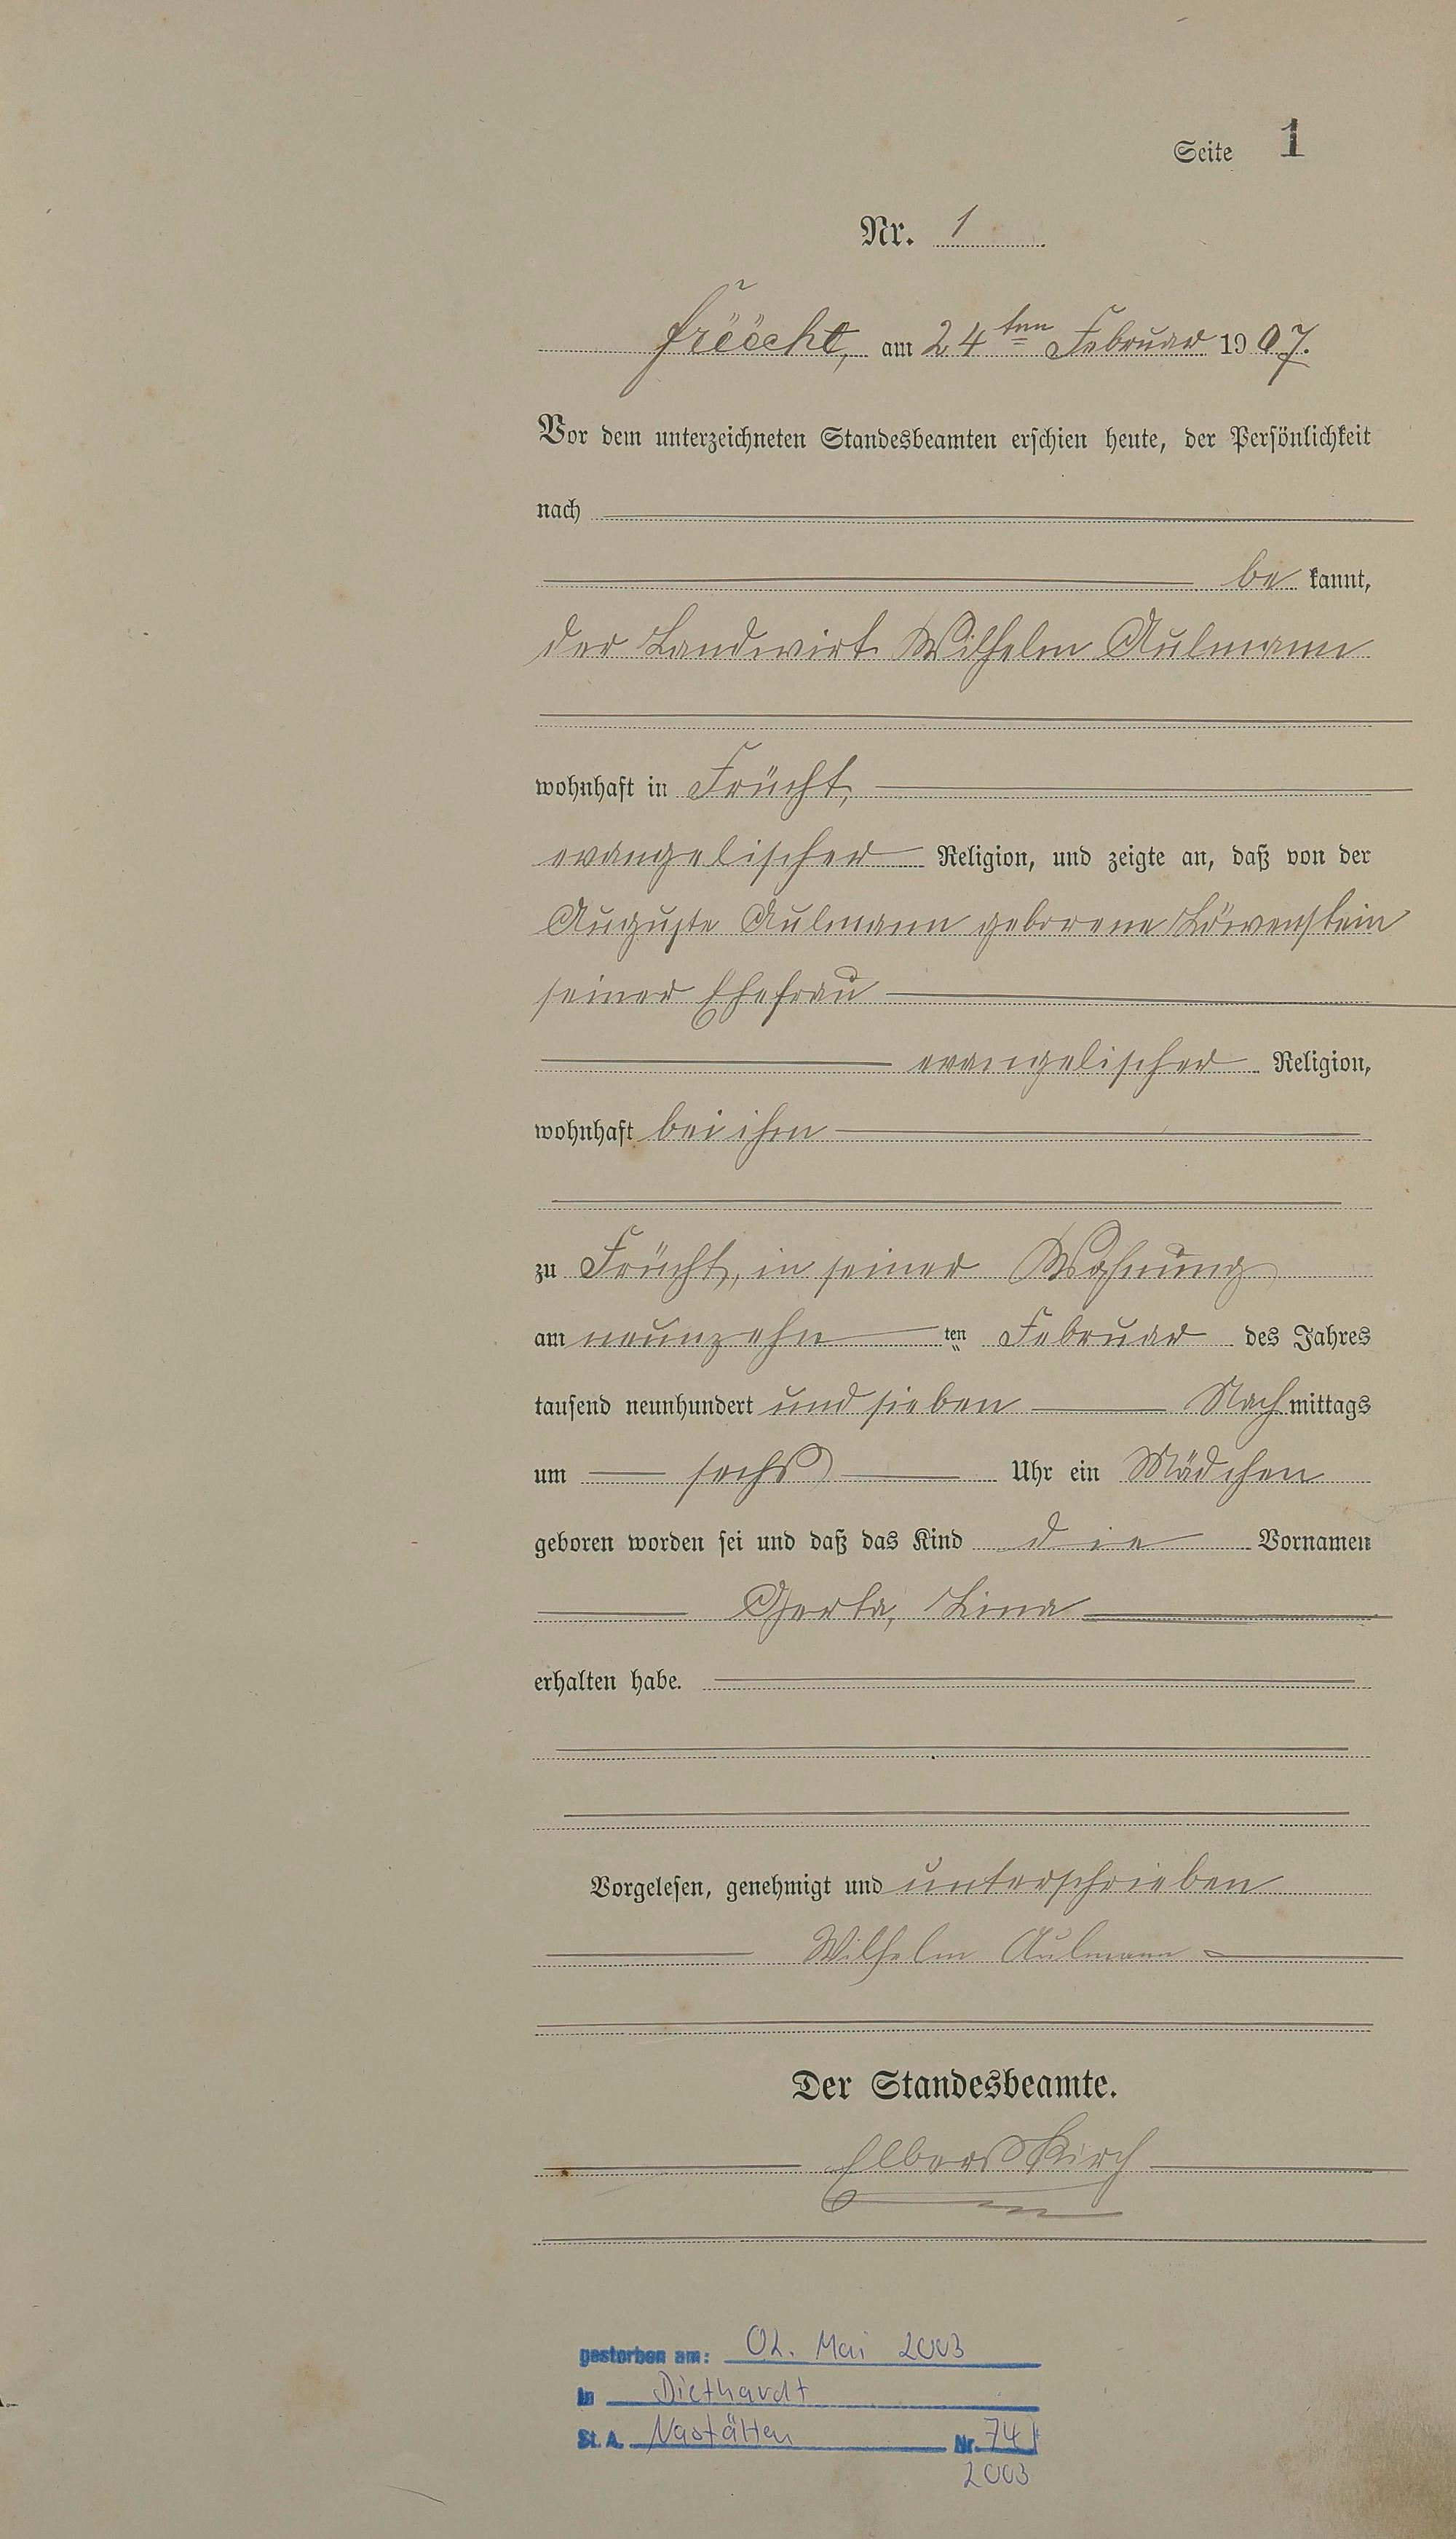 Seite 1
Nr. 1
Früecht, am 24ten Februar 1907.
Vor dem unterzeichneten Standesbeamten erschien heute, der Persönlichkeit
nach
be kannt,
der Landwirt Wilhelm Aulmann
wohnhaft in Frücht,
evangelischer Religion, und zeigte an, daß von der
Auguste Aulmann geborene Löwenstein
seiner Ehefrau
evangelischer Religion,
wohnhaft bei ihm
zu Frücht, in seiner Wohnung
am neunzehn ten Februar des Jahres
tausend neunhundert und sieben Nachmittags
um sechs Uhr ein Mädchen
geboren worden sei und daß das Kind die Vornamen
Gerta, Lina
erhalten habe.
Vorgelesen, genehmigt und unterschrieben
Wilhelm Aulmann
Der Standesbeamte.
Elberskirch
gestorben am: 02. Mai 2003
in Diethardt
St. A. Nastätten Nr. 74/
2003